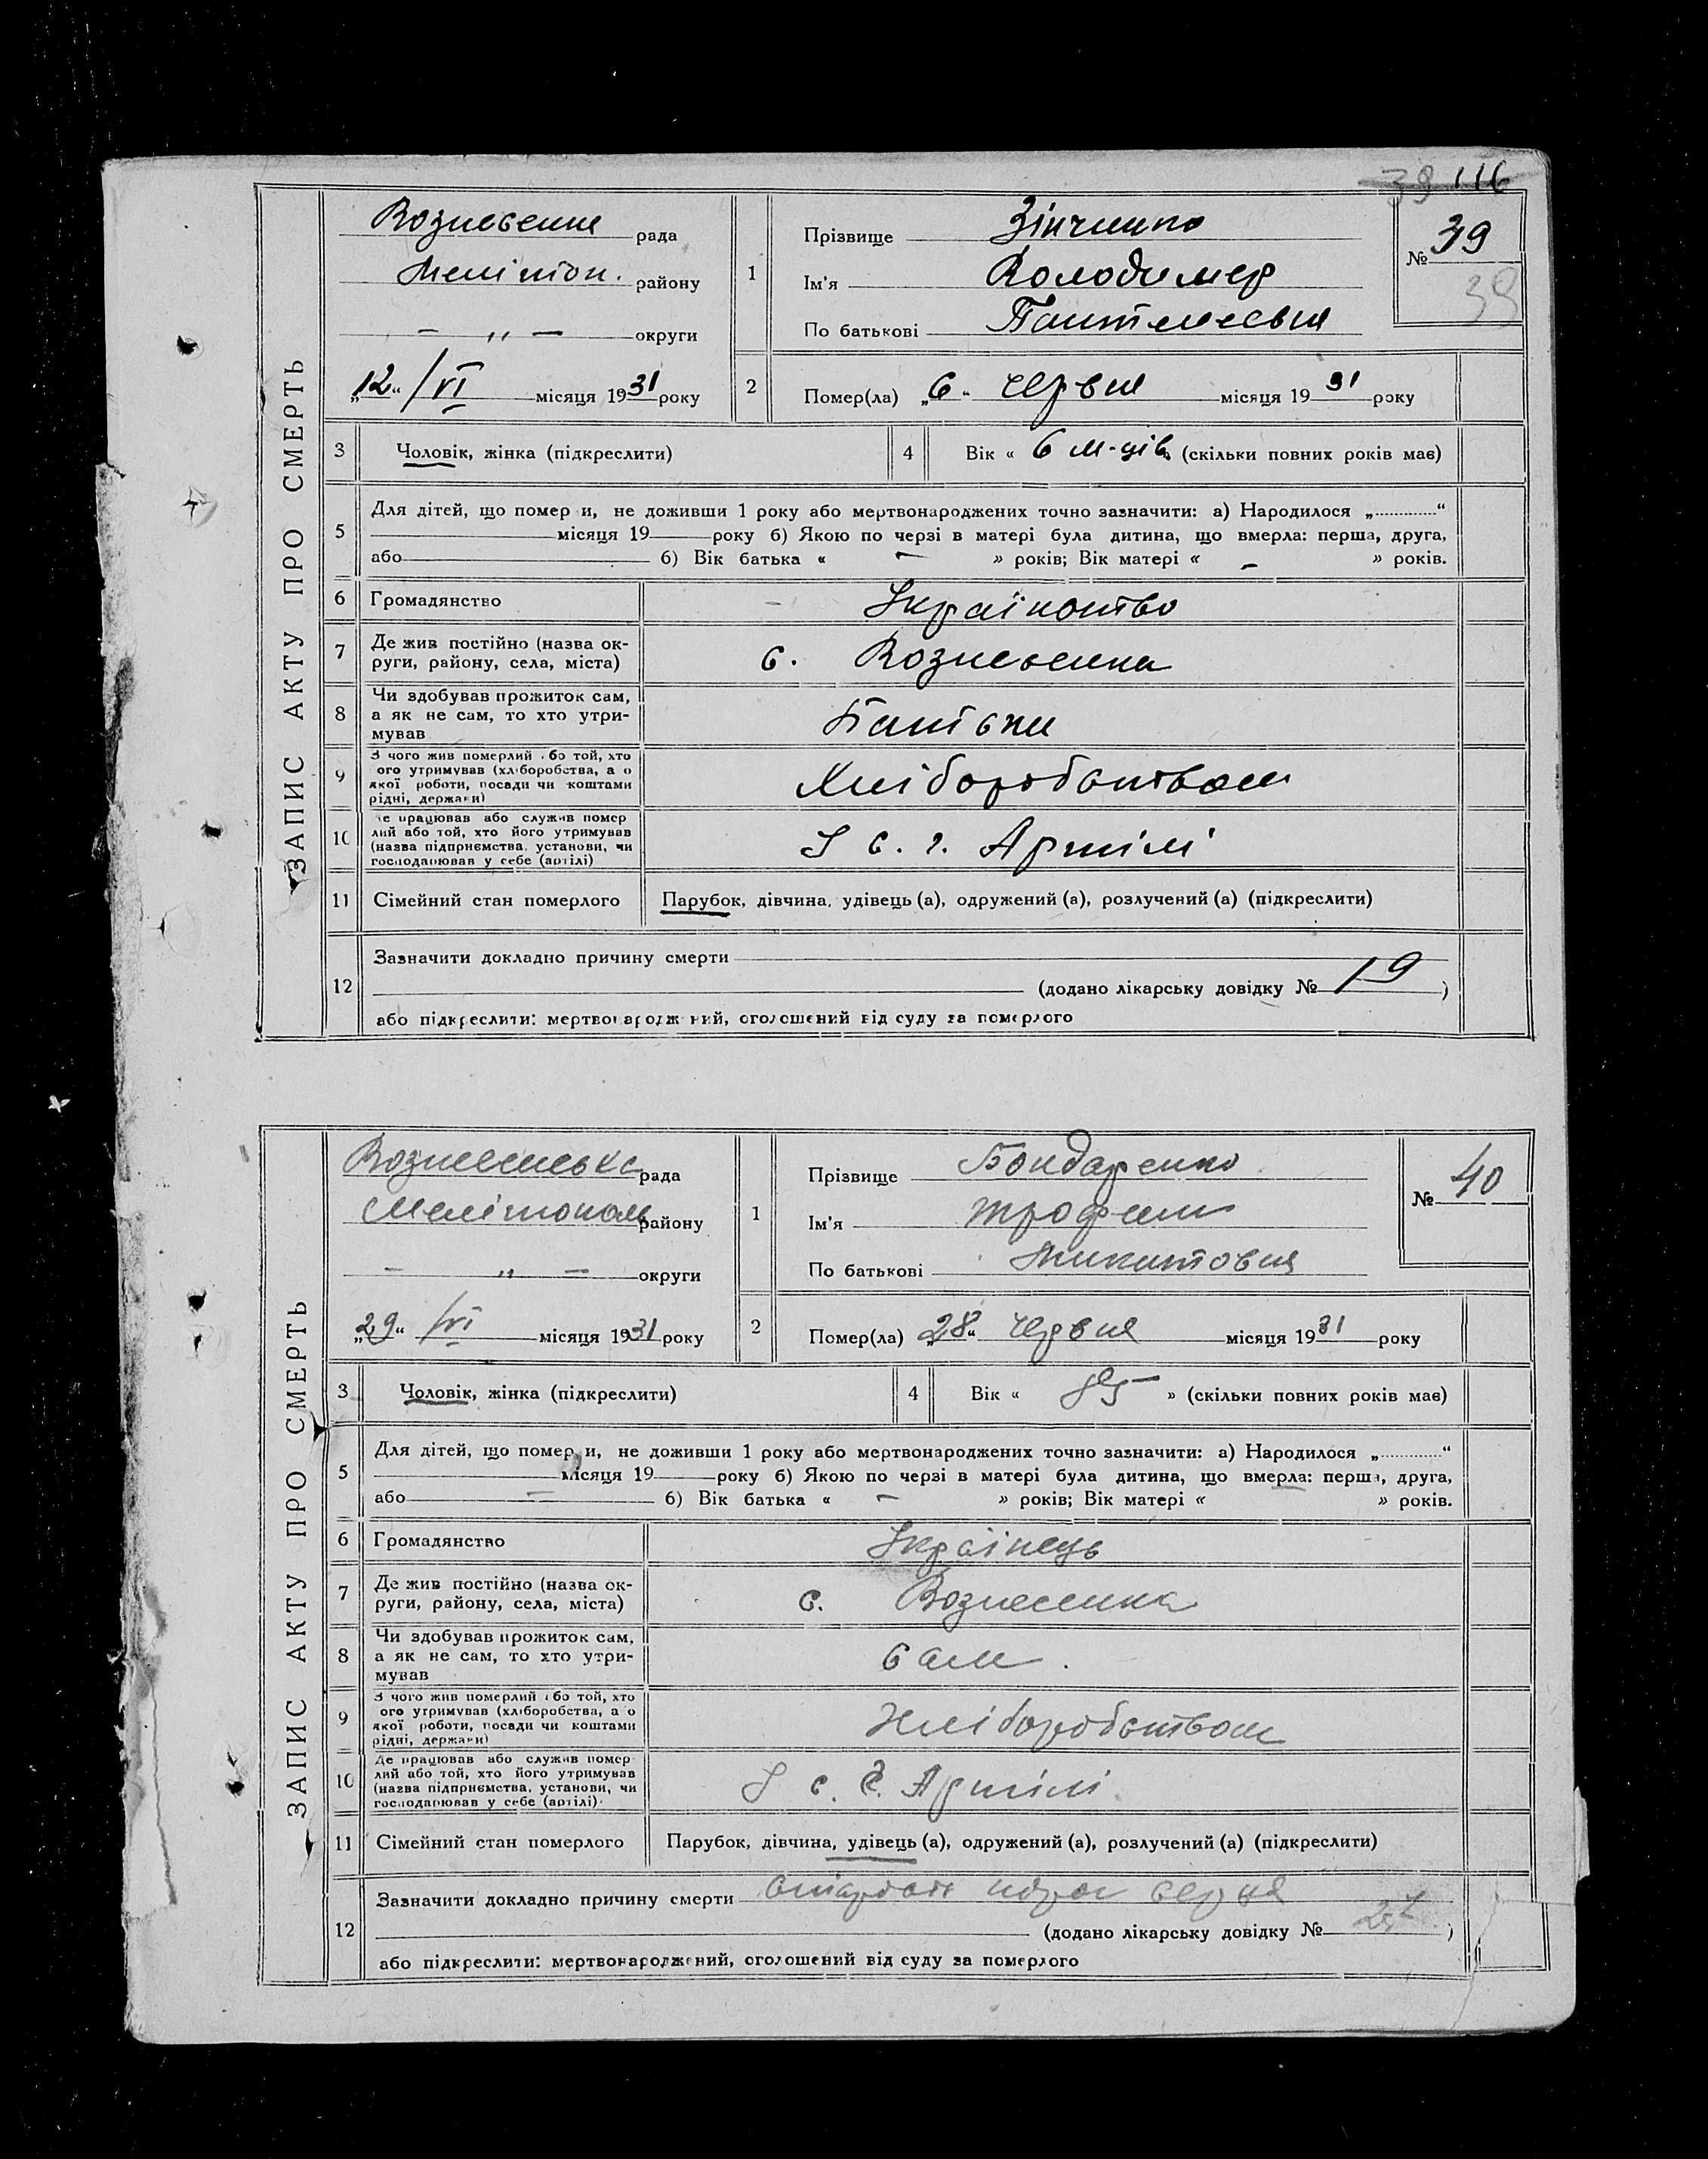 39 116
ЗАПИС АКТУ ПРО СМЕРТЬ
Вознесенка рада
Мелітоп. району
— „ — округи
„12“ /VI місяця 1931 року
1
Прізвище Зінченко
Ім'я Володимер
По батькові Пантелеєвич
№ 39
39
2
Помер(ла) „6“ червня місяця 1931 року
3 Чоловік, жінка (підкреслити)
4 Вік « 6 м-ців (скільки повних років має)
5 Для дітей, що помер и, не доживши 1 року або мертвонароджених точно зазначити: а) Народилося „ “
місяця 19 року б) Якою по черзі в матері була дитина, що вмерла: перша, друга,
або б) Вік батька « — » років; Вік матері « — » років.
6 Громадянство — Українство
7 Де жив постійно (назва ок-
руги, району, села, міста) с. Вознесенка
8 Чи здобував прожиток сам,
а як не сам, то хто утри-
мував Батьки
9 З чого жив померлий бо той, хто
ого утримував (хліборобства, а о
якої роботи, посади чи коштами
рідні, держави) Хліборобством
10 е працював або служив помер
лий або той, хто його утримував
(назва підприємства, установи, чи
господарював у себе (артілі) У с. г. Артілі
11 Сімейний стан померлого Парубок, дівчина, удівець (а), одружений (а), розлучений (а) (підкреслити)
12 Зазначити докладно причину смерти
(додано лікарську довідку № 19 )
або підкреслити: мертвонароджений, оголошений від суду за померлого
ЗАПИС АКТУ ПРО СМЕРТЬ
Вознесенська рада
Мелітополь району
— „ — округи
„29“ /VI місяця 1931 року
1
Прізвище Бондаренко
Ім'я Трофим
По батькові Микитович
№ 40
2
Помер(ла) „28“ червня місяця 1931 року
3 Чоловік, жінка (підкреслити)
4 Вік « » (скільки повних років має)
5 Для дітей, що помер и, не доживши 1 року або мертвонароджених точно зазначити: а) Народилося „ “
місяця 19 року б) Якою по черзі в матері була дитина, що вмерла: перша, друга,
або — б) Вік батька « — » років; Вік матері « » років.
6 Громадянство Українець
7 Де жив постійно (назва ок-
руги, району, села, міста) с. Вознесенка
8 Чи здобував прожиток сам,
а як не сам, то хто утри-
мував Сам.
9 З чого жив померлий бо той, хто
ого утримував (хліборобства, а о
якої роботи, посади чи коштами
рідні, держави) Хліборобством
10 Де працював або служив помер
лий або той, хто його утримував
(назва підприємства, установи, чи
господарював у себе (артілі) У с. г. Артілі
11 Сімейний стан померлого Парубок, дівчина, удівець (а), одружений (а), розлучений (а) (підкреслити)
12 Зазначити докладно причину смерти серця
(додано лікарську довідку № )
або підкреслити: мертвонароджений, оголошений від суду за померлого